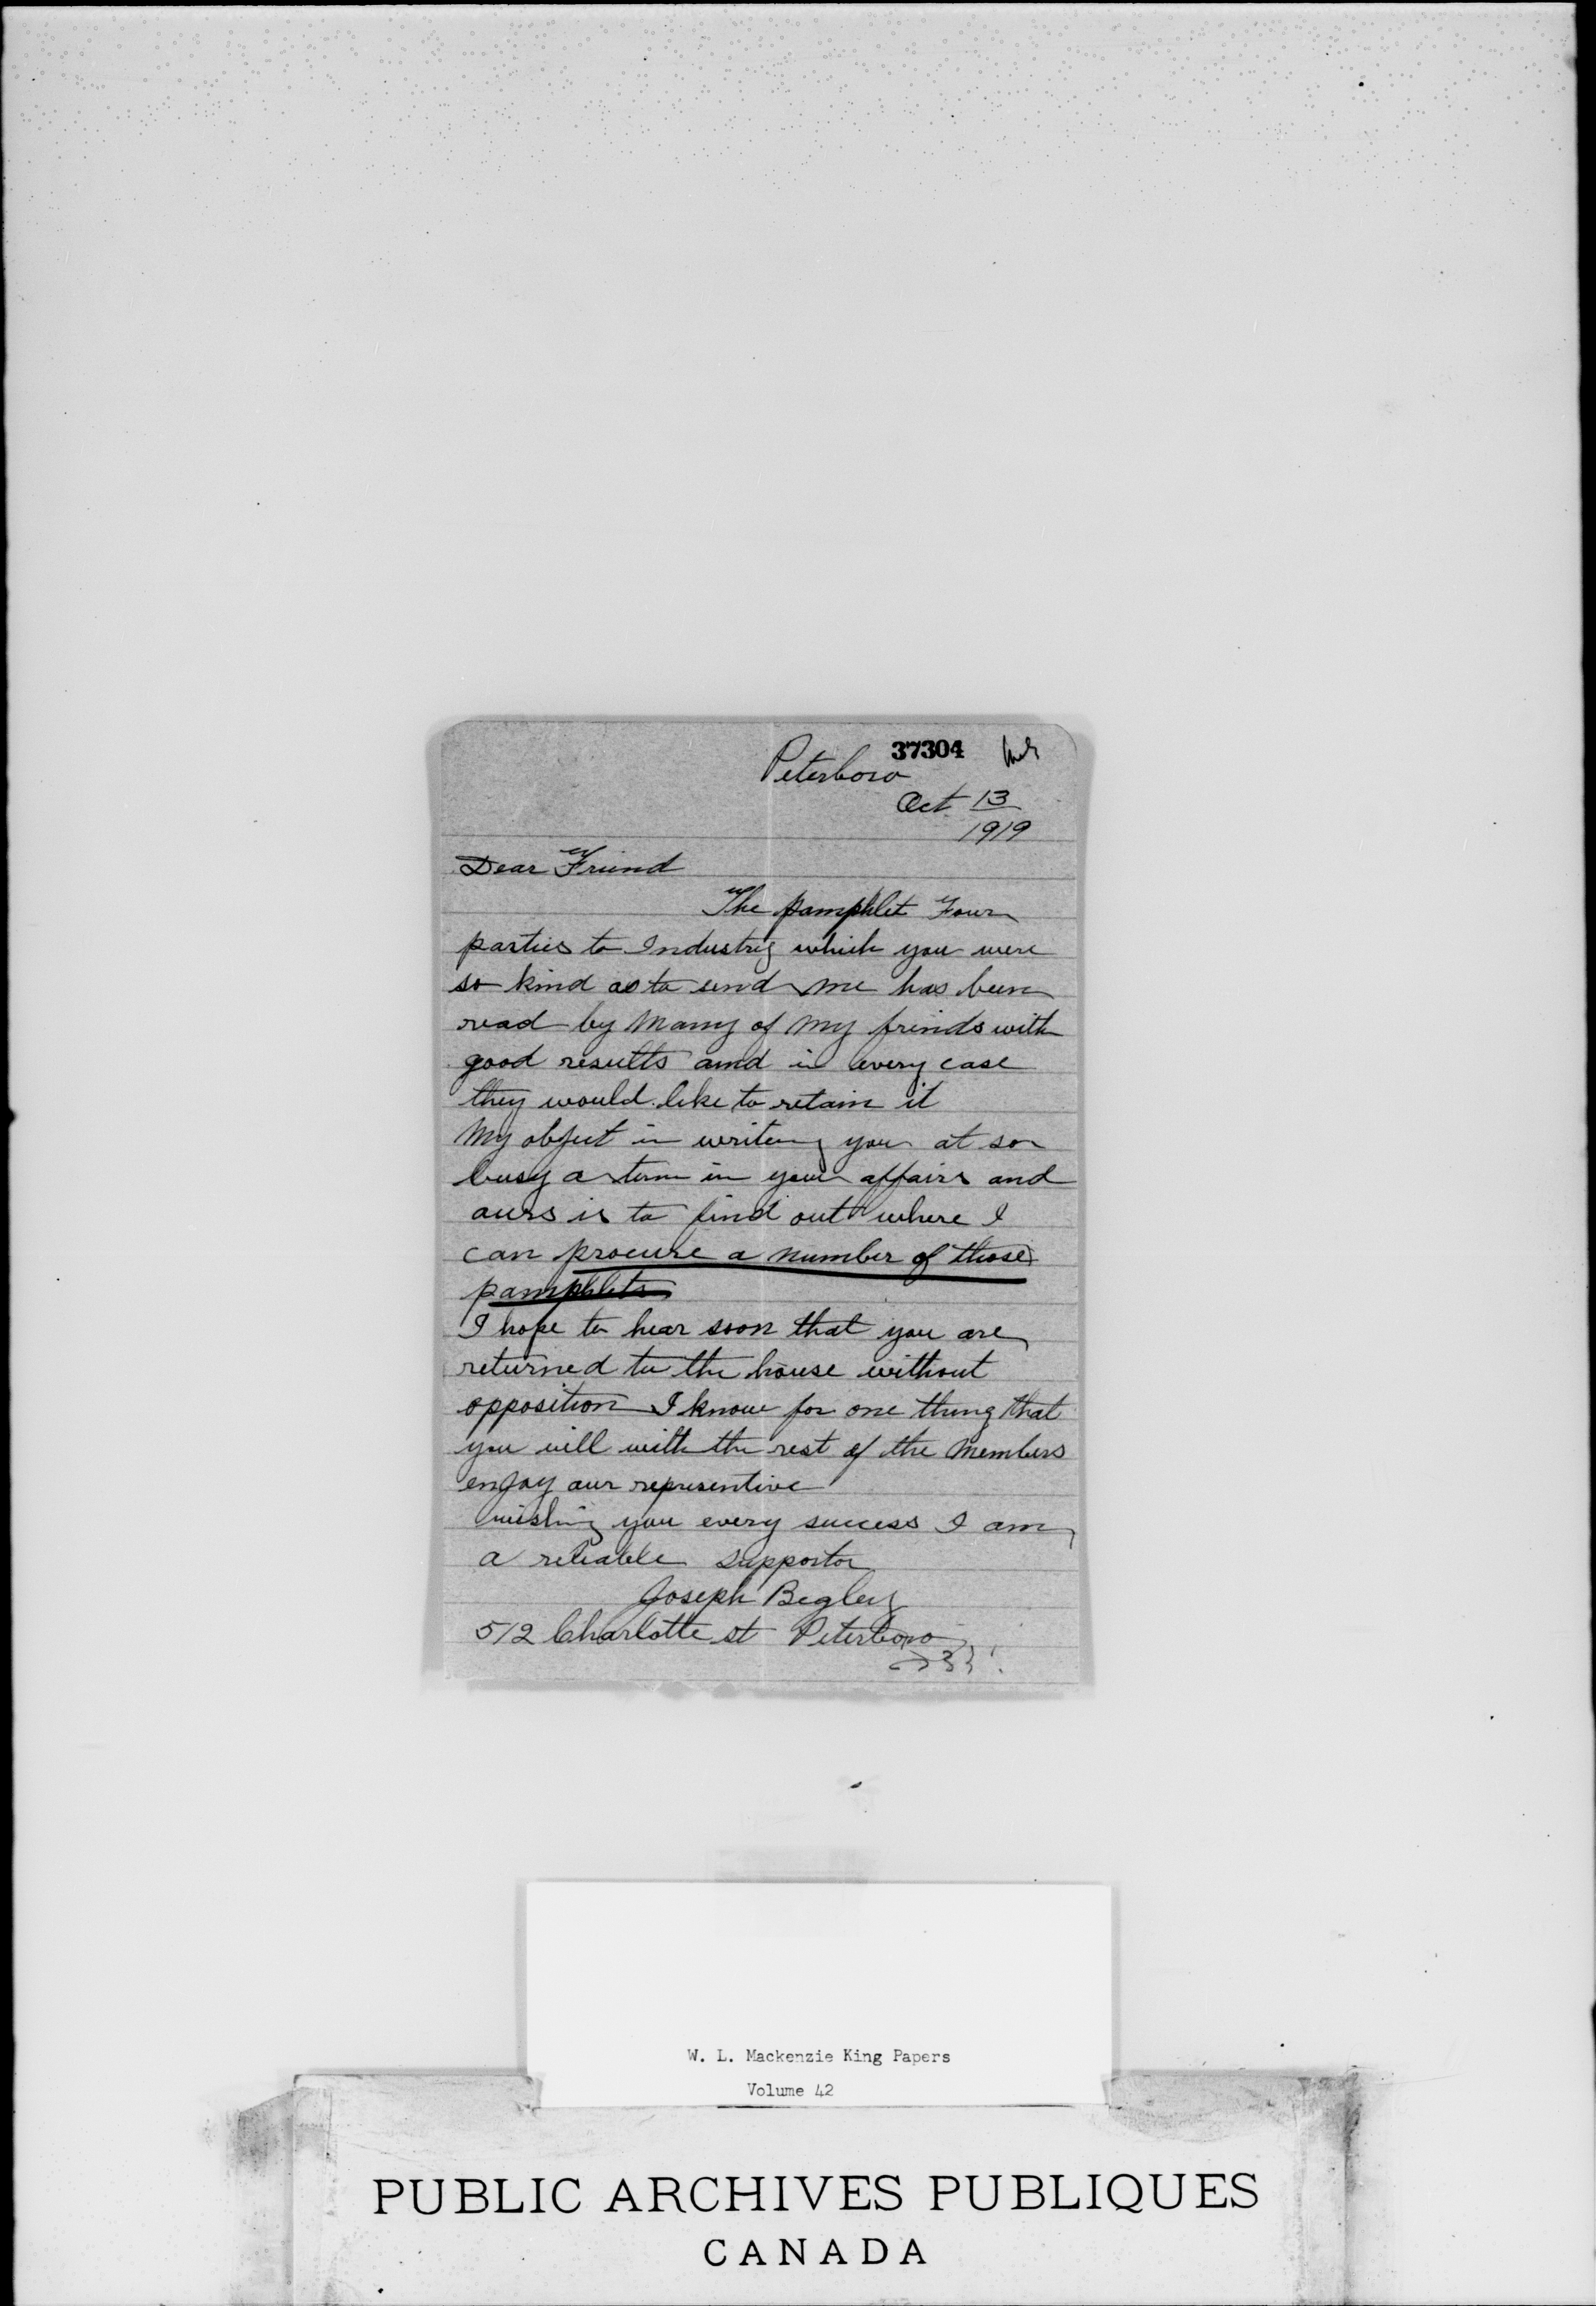 37304
Peterboro
Oct 13
1919
Dear Friend
The pamphlet Four
parties to Industry which you were
so kind as to send me has been
read by many of my frinds with
good results amd in every case
they would like to retain it
My object in writing you at so
busy a term in your affairs and
ours is to find out where I
can procure a number of those
pamphlets
I hope to hear soon that you are
returned to the house without
opposition I know for one thing that
you will with the rest of the members
enjoy our representive
wishing you every success I am
a reliable supporter
Joseph Begley
512 Charlotte st Peterboro
W. L. Mackenzie King Papers
Volume 42
PUBLIC ARCHIVES PUBLIQUES
CANADA